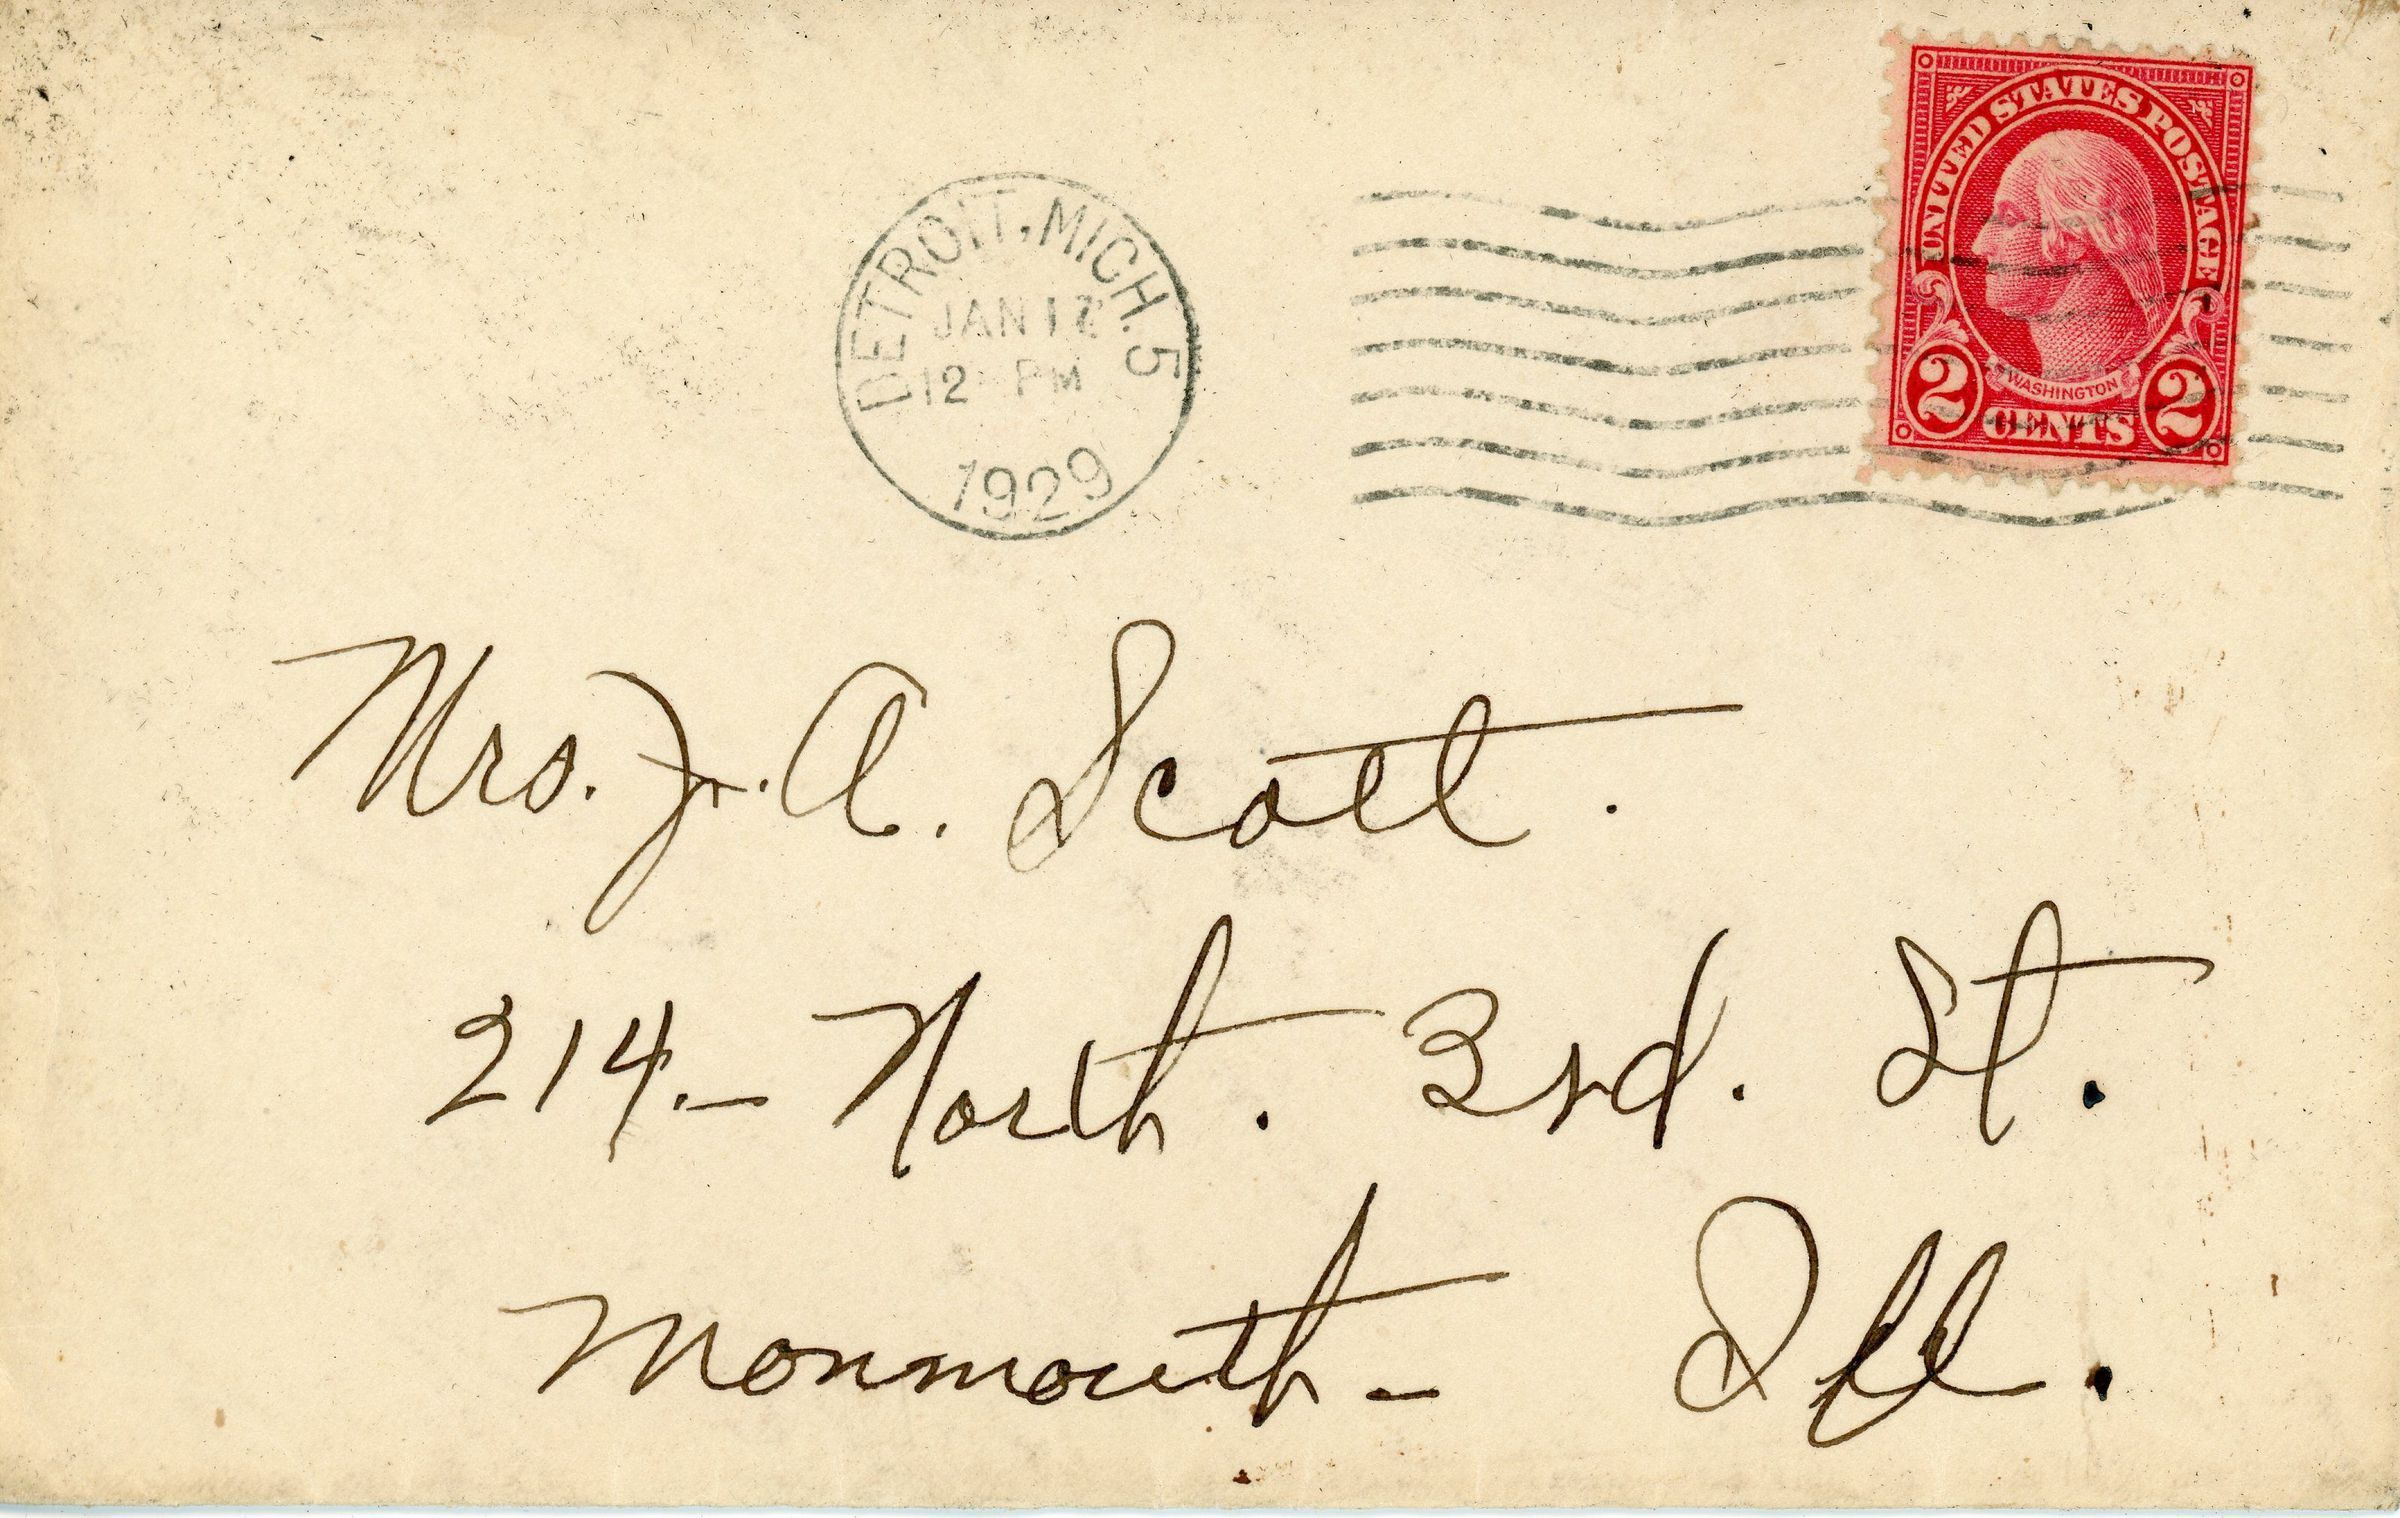 UNITED STATES POSTAGE
WASHINGTON
2 CENTS 2
DETROIT, MICH. 5
JAN 17
12 PM
1929
Mrs. J. A. Scott.
214.- North. 3rd. St.
Monmouth- Ill.